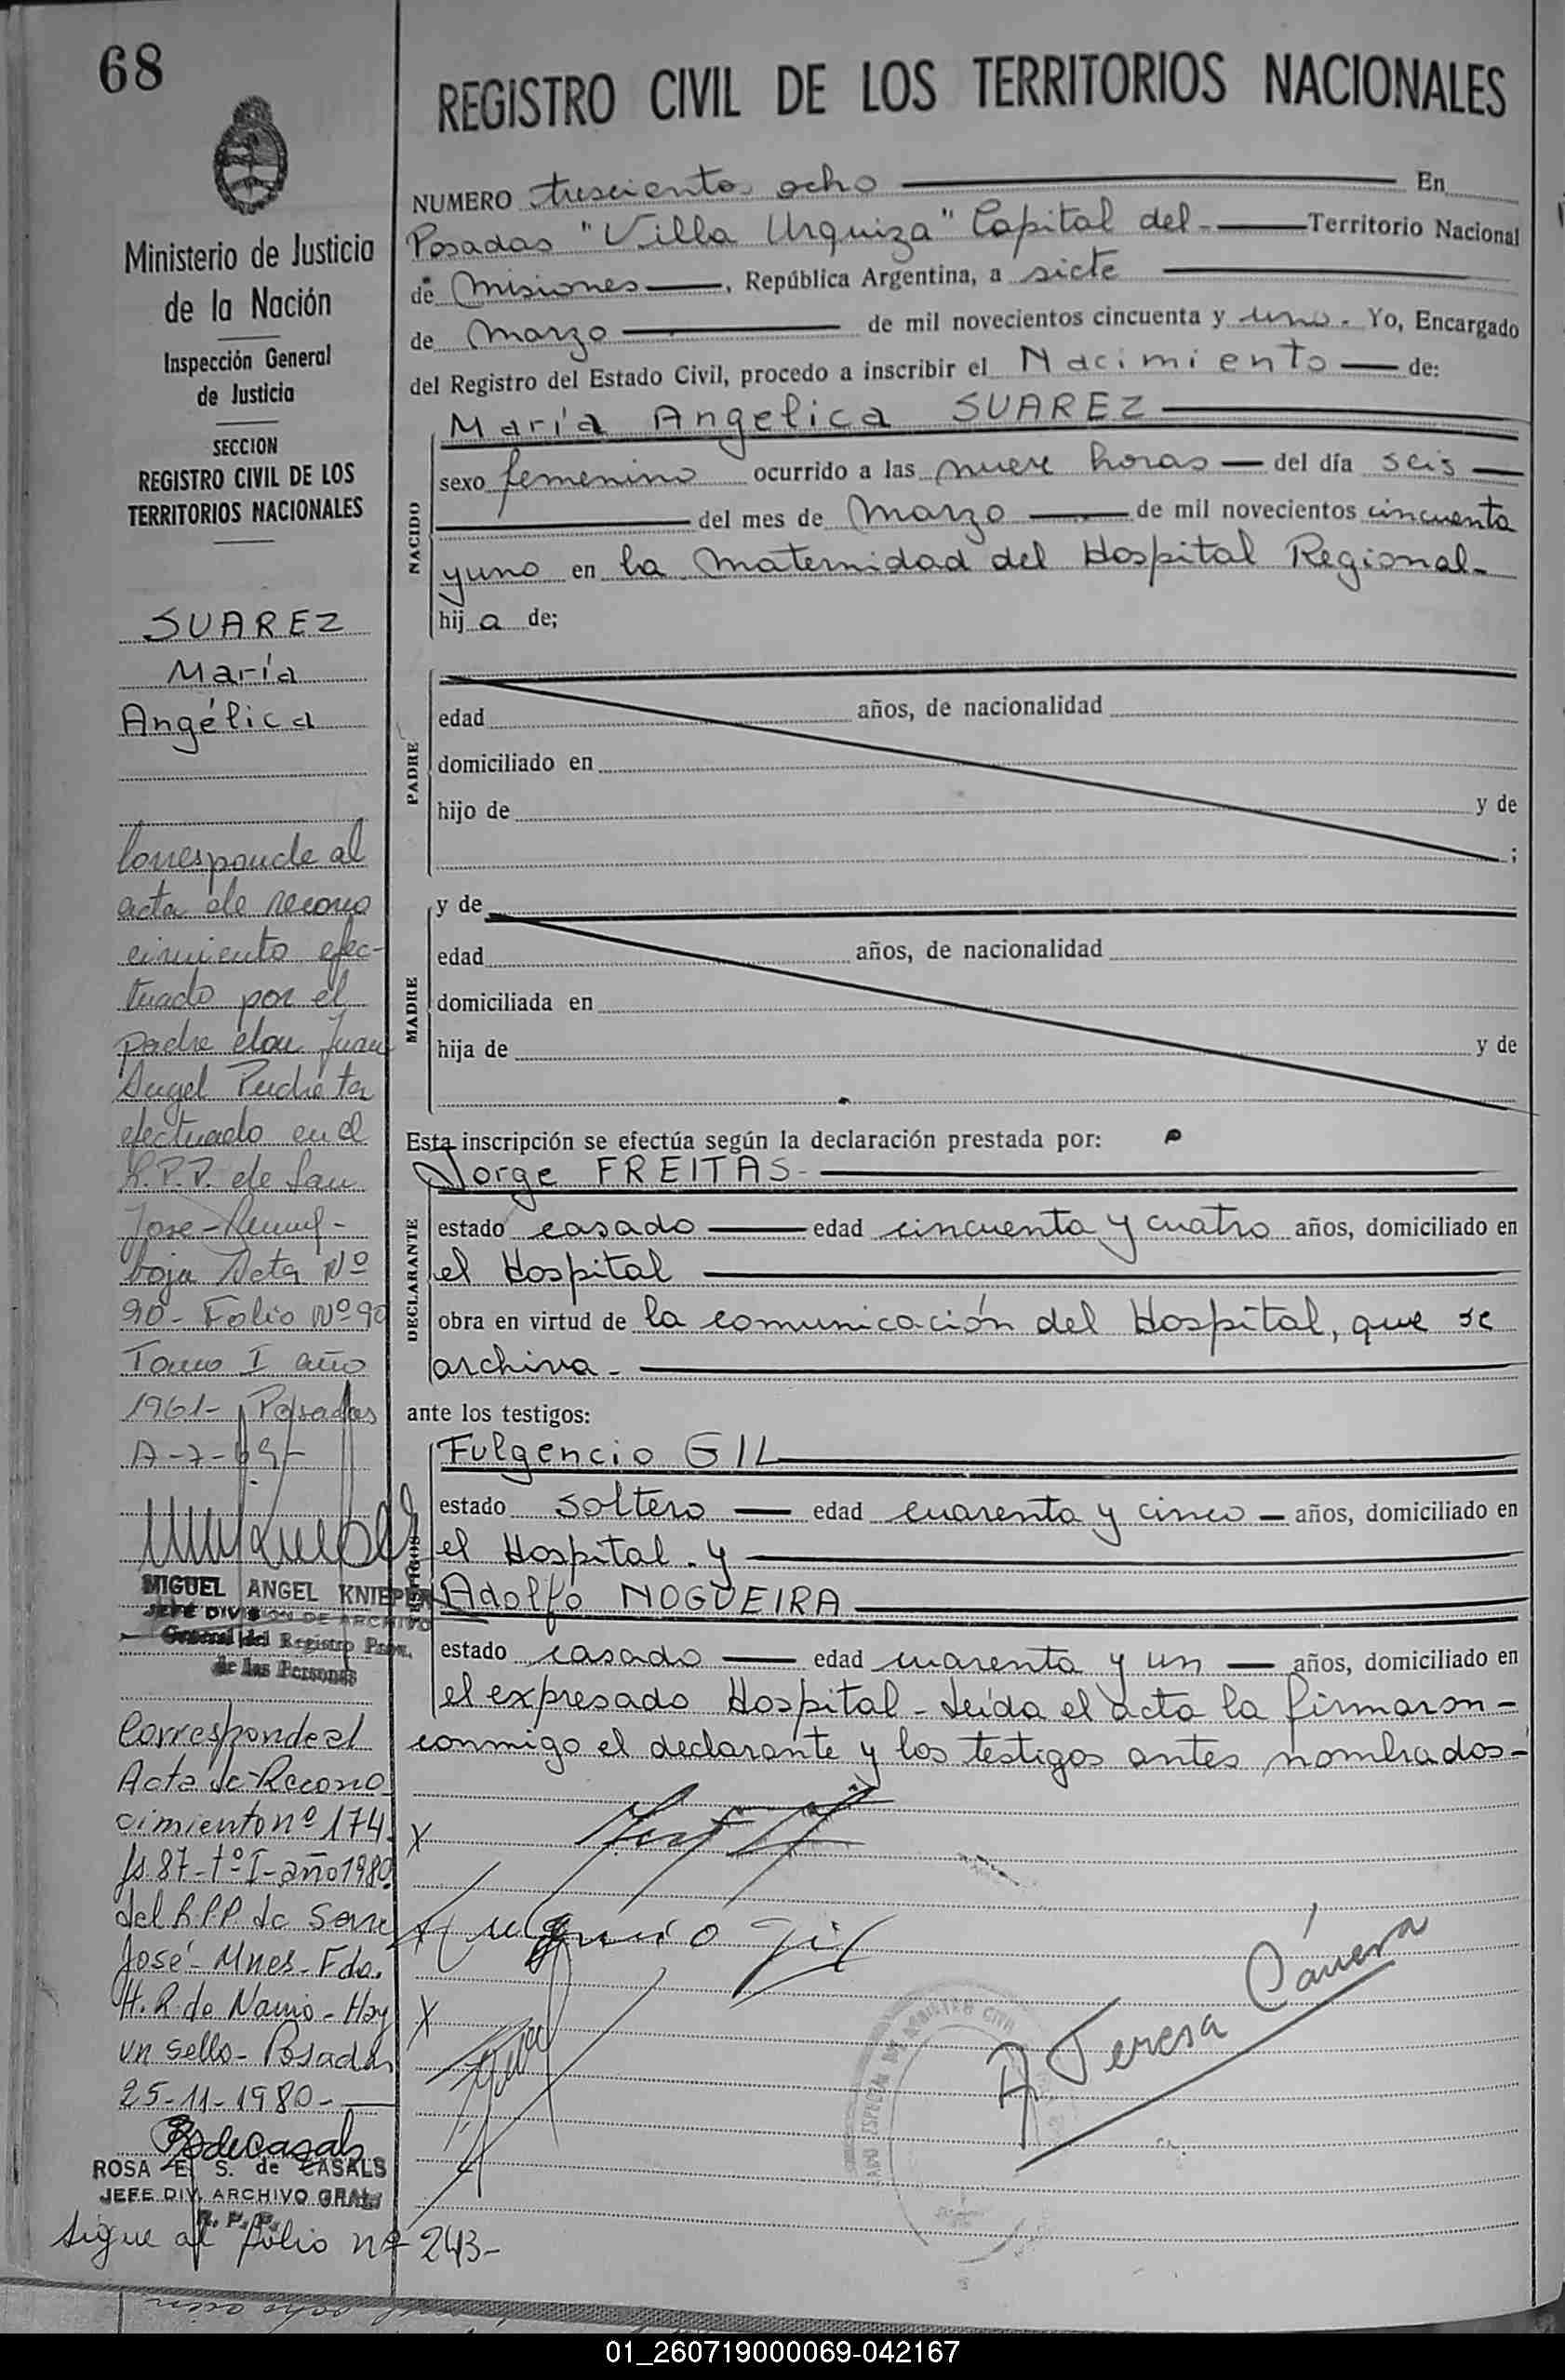 68
REGISTRO CIVIL DE LOS TERRITORIOS NACIONALES
Ministerio de Justicia
de la Nación
Inspección General
de Justicia
SECCION
REGISTRO CIVIL DE LOS
TERRITORIOS NACIONALES
SUAREZ
María
Angélica
Corresponde al
acta de recono
cimiento efec-
tuado por el
padre don Juan
Angel
efectuado en el
R.P.P. de San
Jose -
foja Acta Nº
90 - Folio Nº 90
Tomo I año
1961 - Posadas
MIGUEL ANGEL KNIEPER
JEFE DIVISION DE ARCHIVO
General del Registro Prov.
de las Personas
Corresponde al
Acta de Recono
cimiento nº 174
fs. 87 - tº I - año 1980
del R.P.P. de San
José - Mnes. Fdo.
H. R. de - Hay
un sello - Posadas
25-11-1980-
ROSA E. S. de CASALS
JEFE DIV. ARCHIVO GRAL.
R. P. P.
Sigue al folio nº 243-
NUMERO trescientos ocho En
Posadas "Villa Urquiza" Capital del - Territorio Nacional
de Misiones, República Argentina, a siete
de Marzo de mil novecientos cincuenta y uno. Yo, Encargado
del Registro del Estado Civil, procedo a inscribir el Nacimiento de:
NACIDO
María Angelica SUAREZ
sexo femenino ocurrido a las nueve horas del día seis
del mes de Marzo de mil novecientos cincuenta
y uno en la Maternidad del Hospital Regional-
hija de;
PADRE
edad años, de nacionalidad
domiciliado en
hijo de y de
;
MADRE
y de
edad años, de nacionalidad
domiciliada en
hija de y de
Esta inscripción se efectúa según la declaración prestada por:
DECLARANTE
Jorge FREITAS-
estado casado edad cincuenta y cuatro años, domiciliado en
el Hospital
obra en virtud de la comunicación del Hospital, que se
archiva-
ante los testigos:
TESTIGOS
Fulgencio GIL
estado soltero edad cuarenta y cinco años, domiciliado en
el Hospital. y
Adolfo NOGUEIRA
estado casado edad cuarenta y un años, domiciliado en
el expresado Hospital - Leída el acta la firmaron-
conmigo el declarante y los testigos antes nombrados-
X
Fulgencio Gil
X
A Teresa
01_260719000069-042167